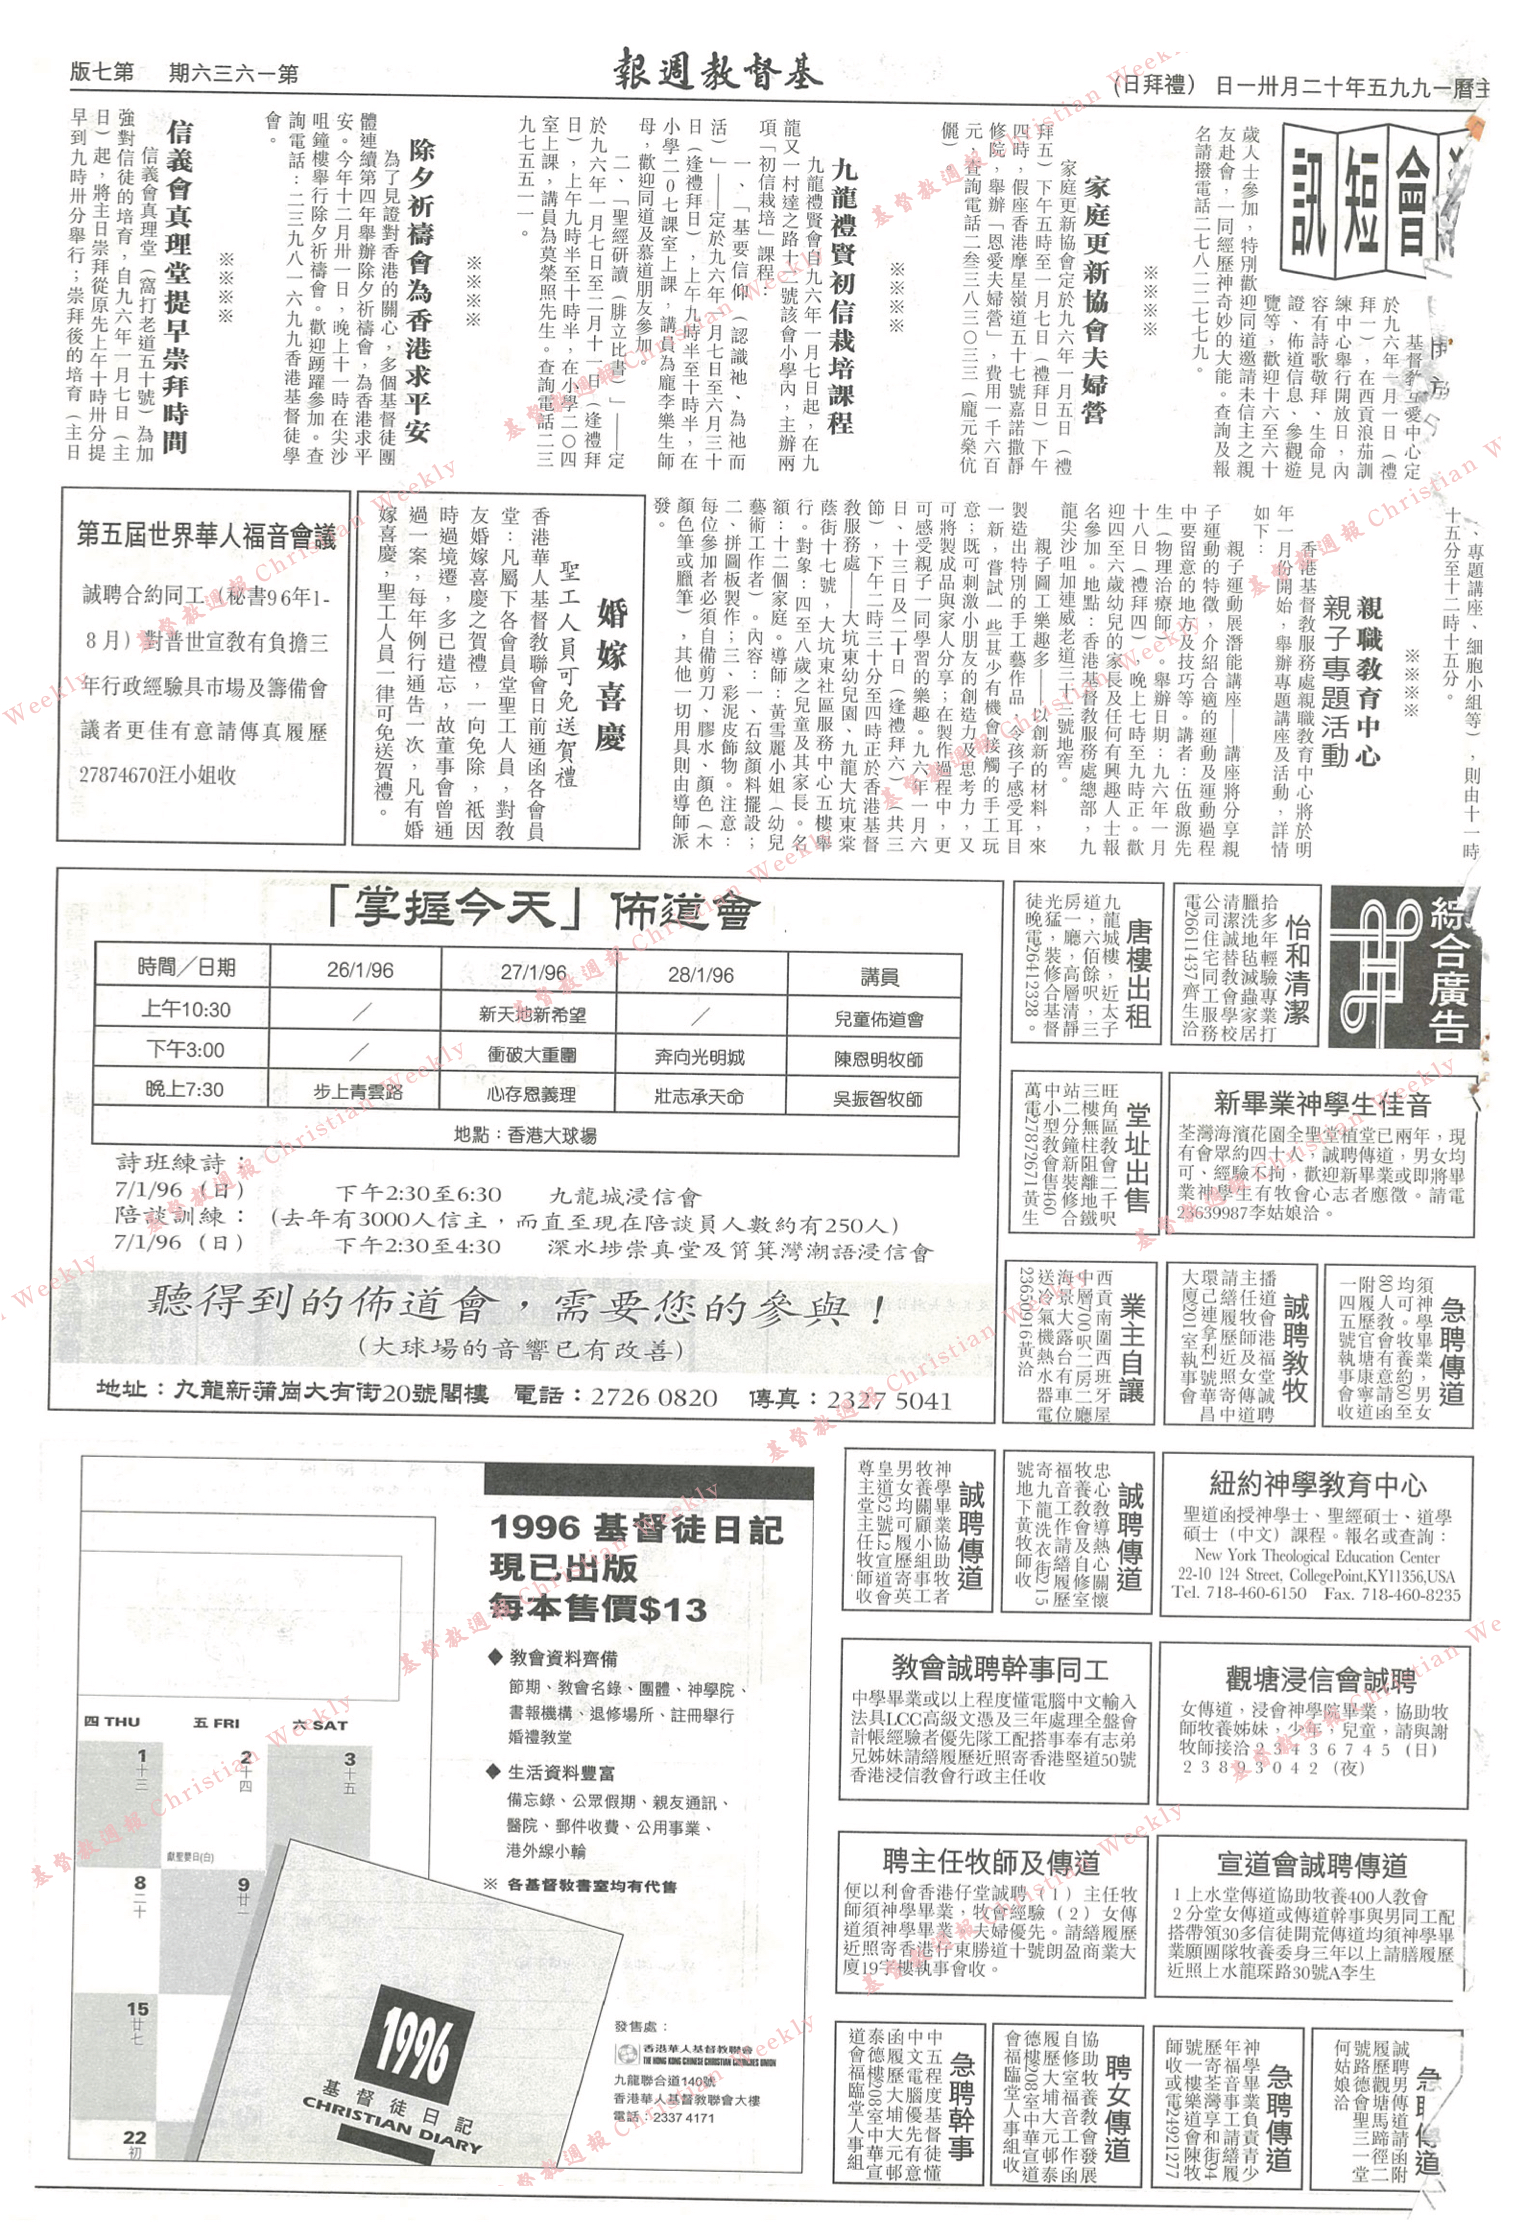 主曆一九九五年十二月卅一日（禮拜日）
基督教週報
第一六三六期　第七版
會短訊
基督教互愛中心定
於九六年一月一日（禮
拜一），在西貢浪茄訓
練中心舉行開放日，內
容有詩歌敬拜、生命見
證、佈道信息、參觀遊
覽等，歡迎十六至六十
歲人士參加，特別歡迎同道邀請未信主之親
友赴會，一同經歷神奇妙的大能。查詢及報
名請撥電話二七八二二七七九。
※※※※
家庭更新協會夫婦營
家庭更新協會定於九六年一月五日（禮
拜五）下午五時至一月七日（禮拜日）下午
四時，假座香港摩星嶺道五十七號嘉諾撒靜
修院，舉辦「恩愛夫婦營」，費用一千六百
元，查詢電話二叁三八三〇三三（龐元燊伉
儷）。
※※※※
九龍禮賢初信栽培課程
九龍禮賢會自九六年一月七日起，在九
龍又一村達之路十二號該會小學內，主辦兩
項「初信栽培」課程：
一、「基要信仰（認識祂、為祂而
活）」——定於九六年一月七日至六月三十
日（逢禮拜日），上午九時半至十時半，在
小學二０七課室上課，講員為龐李樂生師
母，歡迎同道及慕道朋友參加。
二、「聖經研讀（腓立比書）」——定
於九六年一月七日至二月十一日（逢禮拜
日），上午九時半至十時半，在小學二〇四
室上課，講員為莫榮照先生。查詢電話二三
九七五五一一。
※※※※
除夕祈禱會為香港求平安
為了見證對香港的關心，多個基督徒團
體連續第四年舉辦除夕祈禱會，為香港求平
安。今年十二月卅一日，晚上十一時在尖沙
咀鐘樓舉行除夕祈禱會。歡迎踴躍參加。查
詢電話：二三九八一六九九香港基督徒學
會。
※※※※
信義會真理堂提早崇拜時間
信義會真理堂（窩打老道五十號）為加
強對信徒的培育，自九六年一月七日（主
日）起，將主日崇拜從原先上午十時卅分提
早到九時卅分舉行；崇拜後的培育（主日
、專題講座、細胞小組等），則由十一時
十五分至十二時十五分。
※※※※
親職教育中心
親子專題活動
香港基督教服務處親職教育中心將於明
年一月份開始，舉辦專題講座及活動，詳情
如下：
親子運動展潛能講座——講座將分享親
子運動的特徵，介紹合適的運動及運動過程
中要留意的地方及技巧等。講者：伍啟源先
生（物理治療師）。舉辦日期：九六年一月
十八日（禮拜四），晚上七時至九時正。歡
迎四至六歲幼兒的家長及任何有興趣人士報
名參加。地點：香港基督教服務處總部，九
龍尖沙咀加連威老道三十三號地窖。
親子圖工樂趣多——以創新的材料，來
製造出特別的手工藝作品，令孩子感受耳目
一新，嘗試一些甚少有機會接觸的手工玩
意；既可刺激小朋友的創造力及思考力，又
可將製成品與家人分享；在製作過程中，更
可感受親子一同學習的樂趣。九六年一月六
日、十三日及二十日（逢禮拜六）（共三
節），下午二時三十分至四時正於香港基督
教服務處——大坑東幼兒園、九龍大坑東棠
蔭街十七號，大坑東社區服務中心五樓舉
行。對象：四至八歲之兒童及其家長。名
額：十二個家庭。導師：黃雪麗小姐（幼兒
藝術工作者）。內容：一、石紋顏料擺設；
二、拼圖板製作；三、彩泥皮飾物。注意：
每位參加者必須自備剪刀、膠水、顏色（木
顏色筆或臘筆），其他一切用具則由導師派
發。
婚嫁喜慶
聖工人員可免送賀禮
香港華人基督教聯會日前通函各會員
堂：凡屬下各會員堂聖工人員，對教
友婚嫁喜慶之賀禮，一向免除，祇因
時過境遷，多已遺忘，故董事會曾通
過一案，每年例行通告一次，凡有婚
嫁喜慶，聖工人員一律可免送賀禮。
第五屆世界華人福音會議
誠聘合約同工（秘書96年1-
8月）對普世宣教有負擔三
年行政經驗具市場及籌備會
議者更佳有意請傳真履歷
27874670汪小姐收
「掌握今天」佈道會
時間／日期　26/1/96　27/1/96　28/1/96　講員
上午10:30　／　新天地新希望　／　兒童佈道會
下午3:00　／　衝破大重圍　奔向光明城　陳恩明牧師
晚上7:30　步上青雲路　心存恩義理　壯志承天命　吳振智牧師
地點：香港大球場
詩班練詩：
7/1/96（日）　下午2:30至6:30　九龍城浸信會
陪談訓練：（去年有3000人信主，而直至現在陪談員人數約有250人）
7/1/96（日）　下午2:30至4:30　深水埗崇真堂及筲箕灣潮語浸信會
聽得到的佈道會，需要您的參與！
（大球場的音響已有改善）
地址：九龍新蒲崗大有街20號閣樓　電話：2726 0820　傳真：2327 5041
綜合廣告
怡和清潔
拾多年輕驗專業打
臘洗地毡滅蟲家居
清潔誠替教會學校
公司住宅同工服務
電26611437齊生洽
唐樓出租
九龍城樓，近太子
道，六佰餘呎，三
房一廳，高層清靜
光猛，裝修合基督
徒晚電26412328。
新畢業神學生佳音
荃灣海濱花園全聖堂植堂已兩年，現
有會眾約四十人，誠聘傳道，男女均
可、經驗不拘，歡迎新畢業或即將畢
業神學生有牧會心志者應徵。請電
23639987李姑娘洽。
堂址出售
旺角區教會二千呎
三樓無柱阻離地鐵
站二分鐘新裝修合
中小型教會售460
萬電27872671黃生
急聘傳道
須神學畢業，男女
均可。牧養約60至
80人教會有意請函
附履歷官塘康寧道
一四五號執事會收
誠聘教牧
播道會港福堂誠聘
主任牧師及女傳道
請繕履歷近照寄中
環己連拿利1號華昌
大廈201室執事會
業主自讓
西貢南圍西班牙屋
中層700呎二房二廳
海景大露台有車位
送冷氣機熱水器電
23650916黃洽
紐約神學教育中心
聖道函授神學士、聖經碩士、道學
碩士（中文）課程。報名或查詢：
New York Theological Education Center
22-10 124 Street, CollegePoint,KY11356,USA
Tel. 718-460-6150　Fax. 718-460-8235
誠聘傳道
忠心教導熱心關懷
牧養教會及自修室
福音工作請繕履歷
寄九龍洗衣街215
號地下黃牧師收
誠聘傳道
神學畢業協助牧者
牧養關顧小組事工
男女均可履歷寄英
皇道52號L2宣道會
尊主堂主任牧師收
觀塘浸信會誠聘
女傳道，浸會神學院畢業，協助牧
師牧養姊妹，少年，兒童，請與謝
牧師接洽23436745（日）
23893042（夜）
教會誠聘幹事同工
中學畢業或以上程度懂電腦中文輸入
法具LCC高級文憑及三年處理全盤會
計帳經驗者優先隊工配搭事奉有志弟
兄姊妹請繕履歷近照寄香港堅道50號
香港浸信教會行政主任收
宣道會誠聘傳道
1上水堂傳道協助牧養400人教會
2分堂女傳道或傳道幹事與男同工配
搭帶領30多信徒開荒傳道均須神學畢
業願團隊牧養委身三年以上請膳履歷
近照上水龍琛路30號A李生
聘主任牧師及傳道
便以利會香港仔堂誠聘（1）主任牧
師須神學畢業，牧會經驗（2）女傳
道須神學畢業，夫婦優先。請繕履歷
近照寄香港仔東勝道十號朗盈商業大
廈19字樓執事會收。
急聘傳道
誠聘男傳道請函附
履歷觀塘馬蹄徑二
號路德會聖三一堂
何姑娘洽
急聘傳道
神學畢業負責青少
年福音事工請繕履
歷寄荃灣享和街94
號一樓樂道會陳牧
師收或電24921277
聘女傳道
協助牧養教會發展
自修室福音工作函
履歷大埔大元邨泰
德樓208室中華宣道
會福臨堂人事組收
急聘幹事
中五程度基督徒懂
中文電腦優先有意
函履歷大埔大元邨
泰德樓208室中華宣
道會福臨堂人事組
1996 基督徒日記
現已出版
每本售價$13
◆ 教會資料齊備
節期、教會名錄、團體、神學院、
書報機構、退修場所、註冊舉行
婚禮教堂
◆ 生活資料豐富
備忘錄、公眾假期、親友通訊、
醫院、郵件收費、公用事業、
港外線小輪
※ 各基督教書室均有代售
四 THU　五 FRI　六 SAT
1 十三　2 十四　3 十五
獻聖嬰日(白)
8 二十　9 廿一
15 廿七
22 初
1996
基督徒日記
CHRISTIAN DIARY
發售處：
香港華人基督教聯會
THE HONG KONG CHINESE CHRISTIAN CHURCHES UNION
九龍聯合道140號
香港華人基督教聯會大樓
電話：2337 4171
基督教週報 Christian Weekly